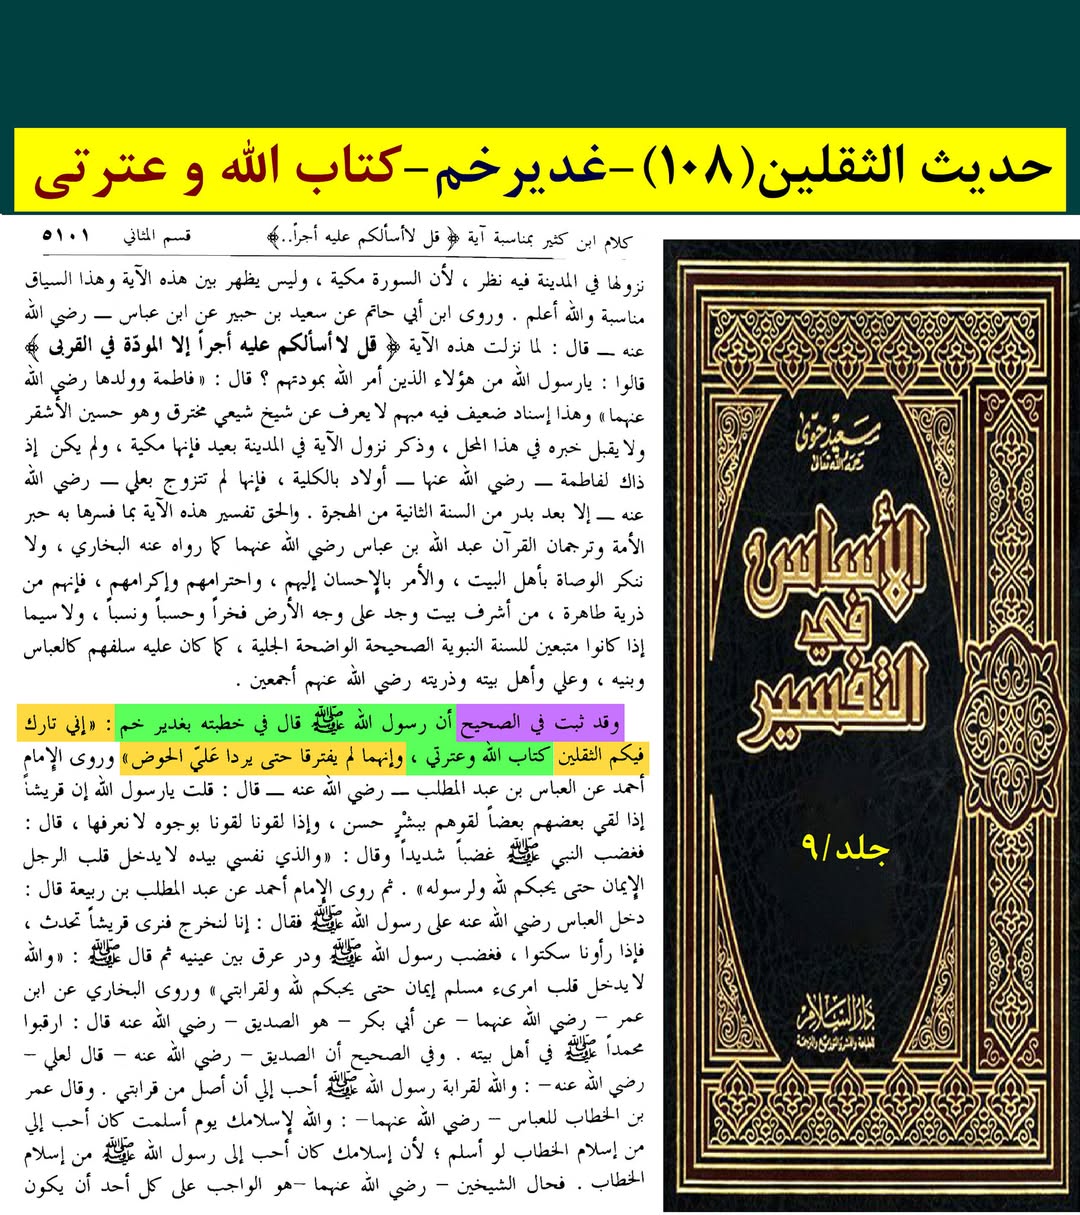 حديث الثقلين(١٠٨)-غديرخم-كتاب الله و عترتى
كلام ابن كثير بمناسبة آية ﴿ قل لاأسألكم عليه أجراً..﴾ قسم المثاني ٥١٠١
نزولها في المدينة فيه نظر ، لأن السورة مكية ، وليس يظهر بين هذه الآية وهذا السياق
مناسبة والله أعلم . وروى ابن أبي حاتم عن سعيد بن حبير عن ابن عباس ــ رضي الله
عنه ــ قال : لما نزلت هذه الآية ﴿ قل لاأسألكم عليه أجراً إلا المودّة في القربى ﴾
قالوا : يارسول الله من هؤلاء الذين أمر الله بمودتهم ؟ قال : «فاطمة وولدها رضي الله
عنهما» وهذا إسناد ضعيف فيه مبهم لايعرف عن شيخ شيعي مخترق وهو حسين الأشقر
ولايقبل خبره في هذا المحل ، وذكر نزول الآية في المدينة بعيد فإنها مكية ، ولم يكن إذ
ذاك لفاطمة ــ رضي الله عنها ــ أولاد بالكلية ، فإنها لم تتزوج بعلي ــ رضي الله
عنه ــ إلا بعد بدر من السنة الثانية من الهجرة . والحق تفسير هذه الآية بما فسرها به حبر
الأمة وترجمان القرآن عبد الله بن عباس رضي الله عنهما كما رواه عنه البخاري ، ولا
ننكر الوصاة بأهل البيت ، والأمر بالإحسان إليهم ، واحترامهم وإكرامهم ، فإنهم من
ذرية طاهرة ، من أشرف بيت وجد على وجه الأرض فخراً وحسباً ونسباً ، ولاسيما
إذا كانوا متبعين للسنة النبوية الصحيحة الواضحة الجلية ، كما كان عليه سلفهم كالعباس
وبنيه ، وعلي وأهل بيته وذريته رضي الله عنهم أجمعين .
وقد ثبت في الصحيح أن رسول الله ﷺ قال في خطبته بغدير خم : «إني تارك
فيكم الثقلين كتاب الله وعترتي ، وإنهما لم يفترقا حتى يردا عَليّ الحوض» وروى الإمام
أحمد عن العباس بن عبد المطلب ــ رضي الله عنه ــ قال : قلت يارسول الله إن قريشاً
إذا لقي بعضهم بعضاً لقوهم ببشْرٍ حسن ، وإذا لقونا لقونا بوجوه لانعرفها ، قال :
فغضب النبي ﷺ غضباً شديداً وقال : «والذي نفسي بيده لايدخل قلب الرجل
الإيمان حتى يحبكم لله ولرسوله» . ثم روى الإمام أحمد عن عبد المطلب بن ربيعة قال :
دخل العباس رضي الله عنه على رسول الله ﷺ فقال : إنا لنخرج فنرى قريشاً تحدث ،
فإذا رأونا سكتوا ، فغضب رسول الله ﷺ ودر عرق بين عينيه ثم قال ﷺ : «والله
لايدخل قلب امرىء مسلم إيمان حتى يحبكم لله ولقرابتي» وروى البخاري عن ابن
عمر – رضي الله عنهما – عن أبي بكر – هو الصديق – رضي الله عنه قال : ارقبوا
محمداً ﷺ في أهل بيته . وفي الصحيح أن الصديق – رضي الله عنه – قال لعلي –
رضي الله عنه– : والله لقرابة رسول الله ﷺ أحب إلي أن أصل من قرابتي . وقال عمر
بن الخطاب للعباس – رضي الله عنهما– : والله لإسلامك يوم أسلمت كان أحب إلي
من إسلام الخطاب لو أسلم ؛ لأن إسلامك كان أحب إلى رسول الله ﷺ من إسلام
الخطاب . فحال الشيخين – رضي الله عنهما –هو الواجب على كل أحد أن يكون
سعيد حوّى
رحمه الله تعالى
الأساس
في
التفسير
جلد/٩
دار السلام
للطباعة والنشر والتوزيع والترجمة